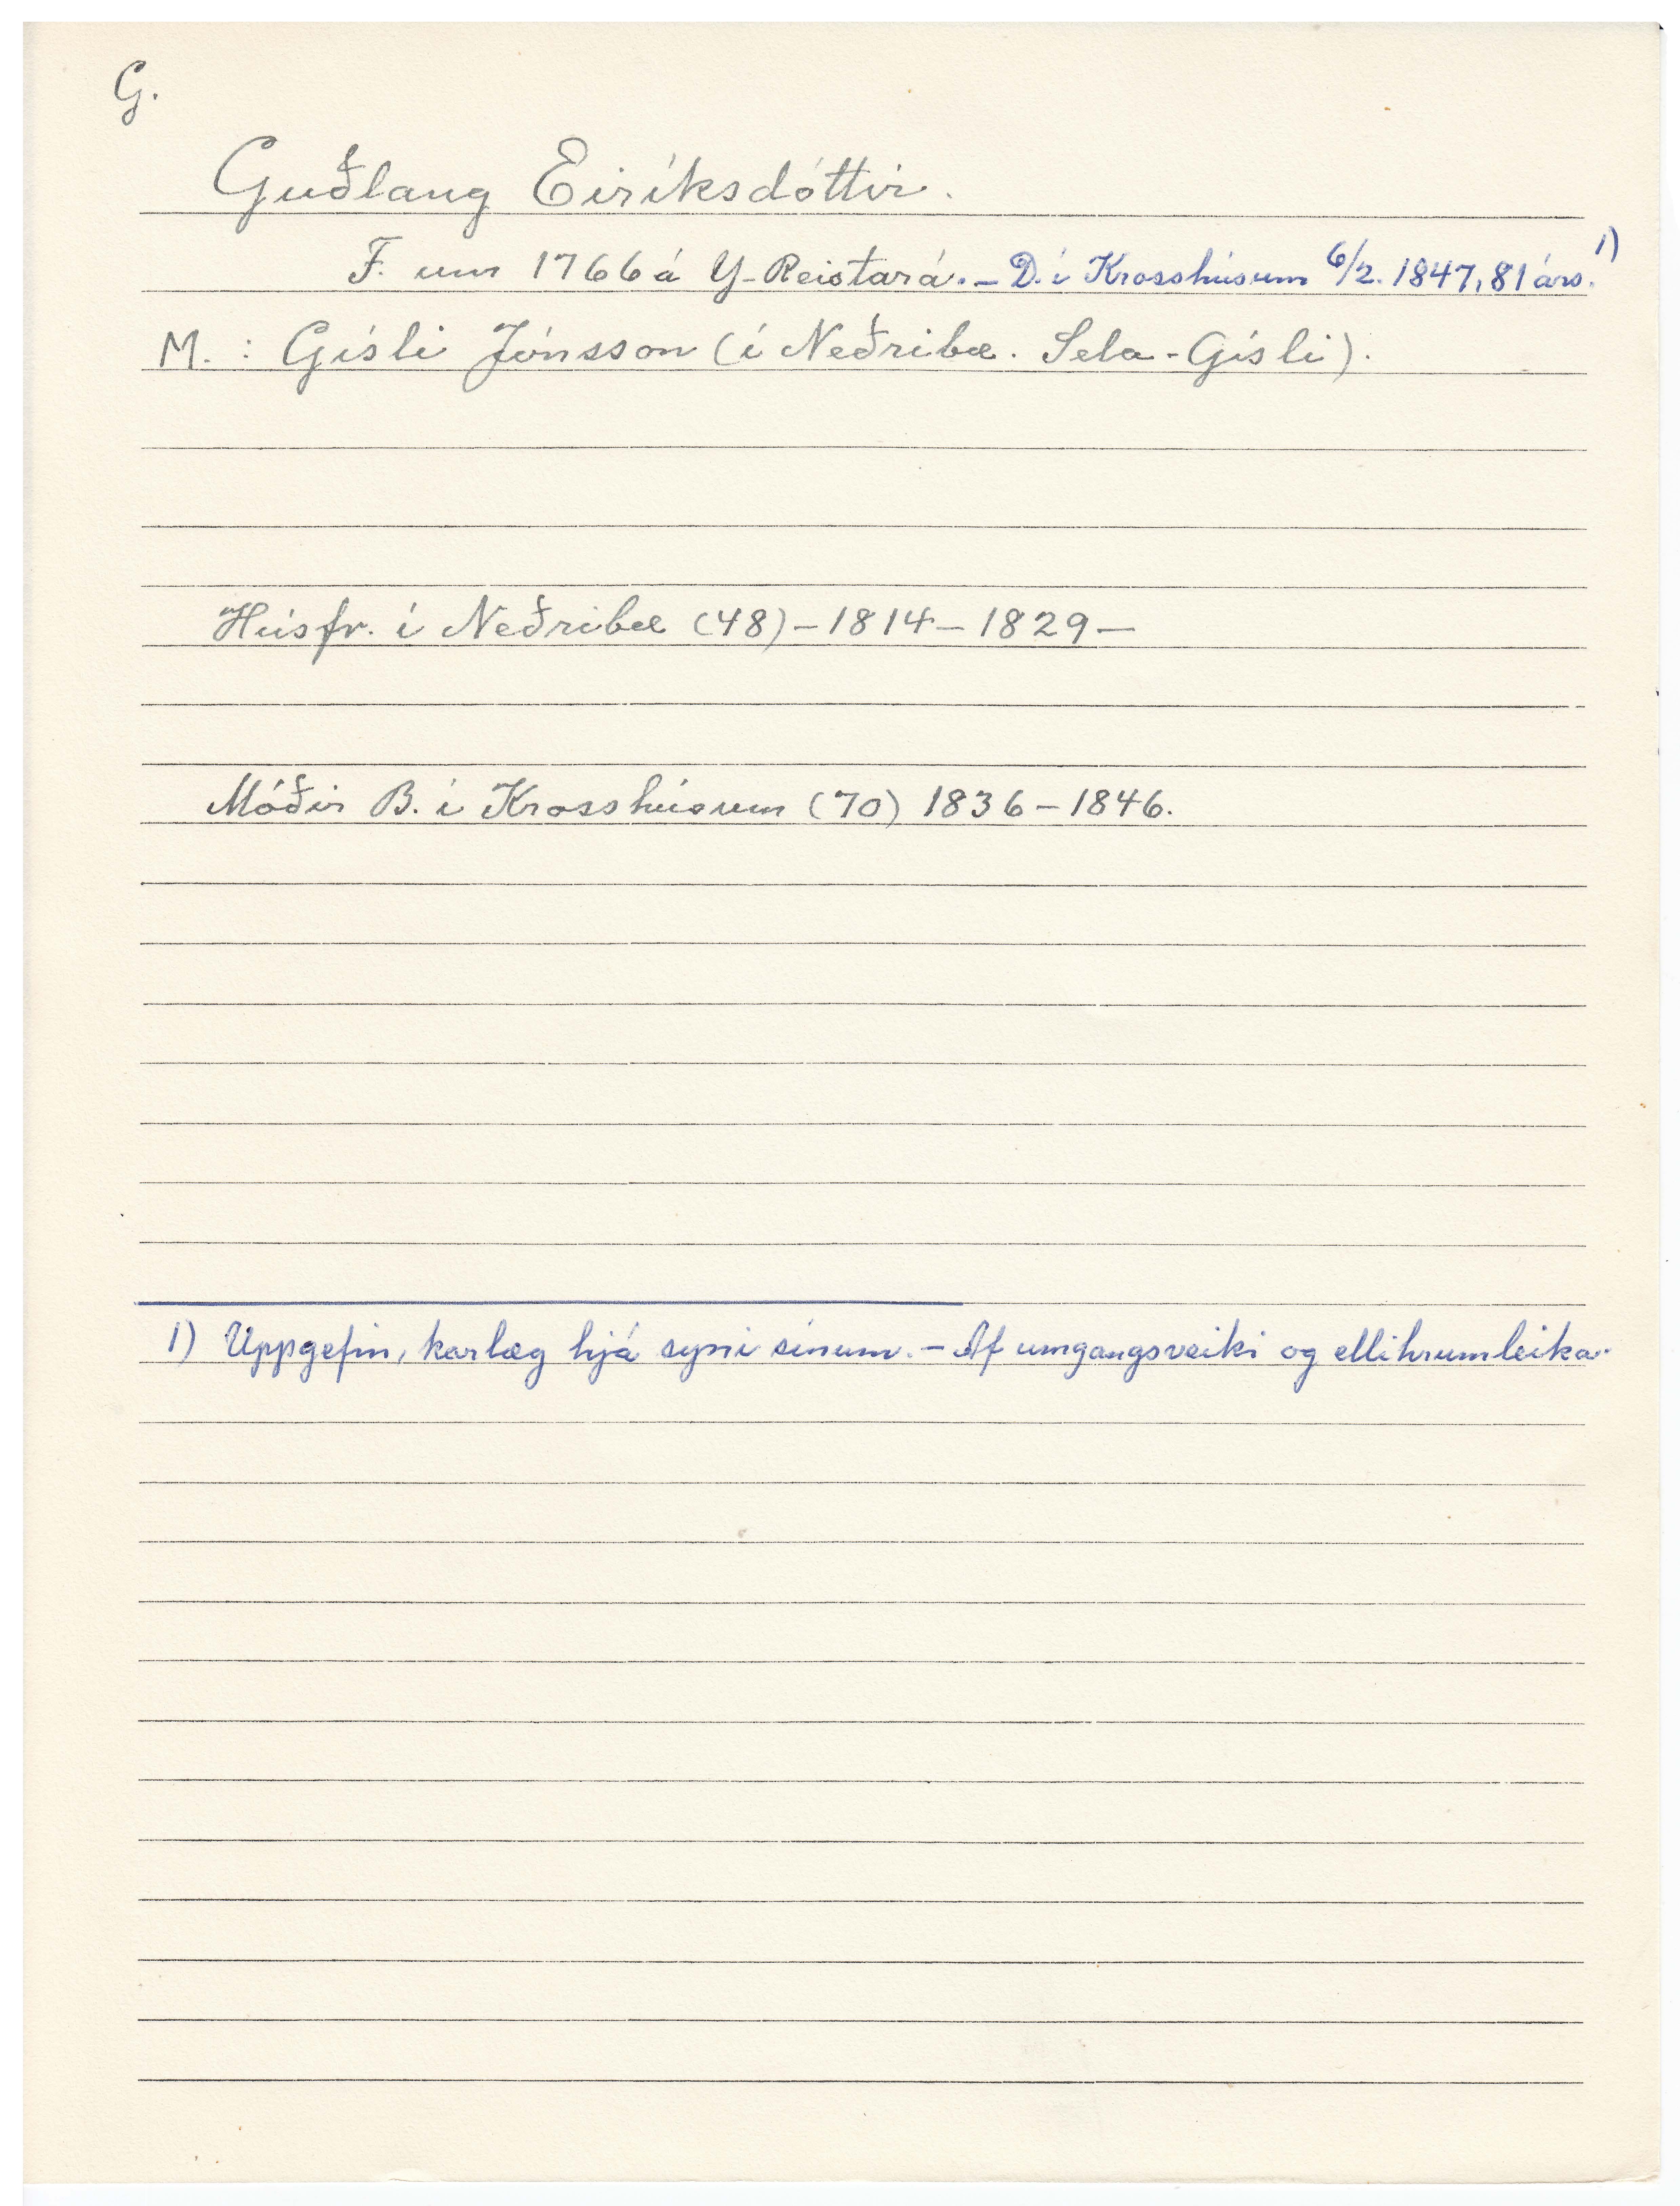 G.
Guðlaug Eiríksdóttir.
F. um 1766 á Y-Reistará. – D. í Krosshúsum 6/2. 1847, 81 árs. 1)
M. : Gísli Jónsson (í Neðribæ. Sela-Gísli).
Húsfr. í Neðribæ (48) – 1814 – 1829 –
Móðir B. í Krosshúsum (70) 1836 – 1846.
1) Uppgefin, karlæg hjá syni sínum. – Af umgangsveiki og ellihrumleika.